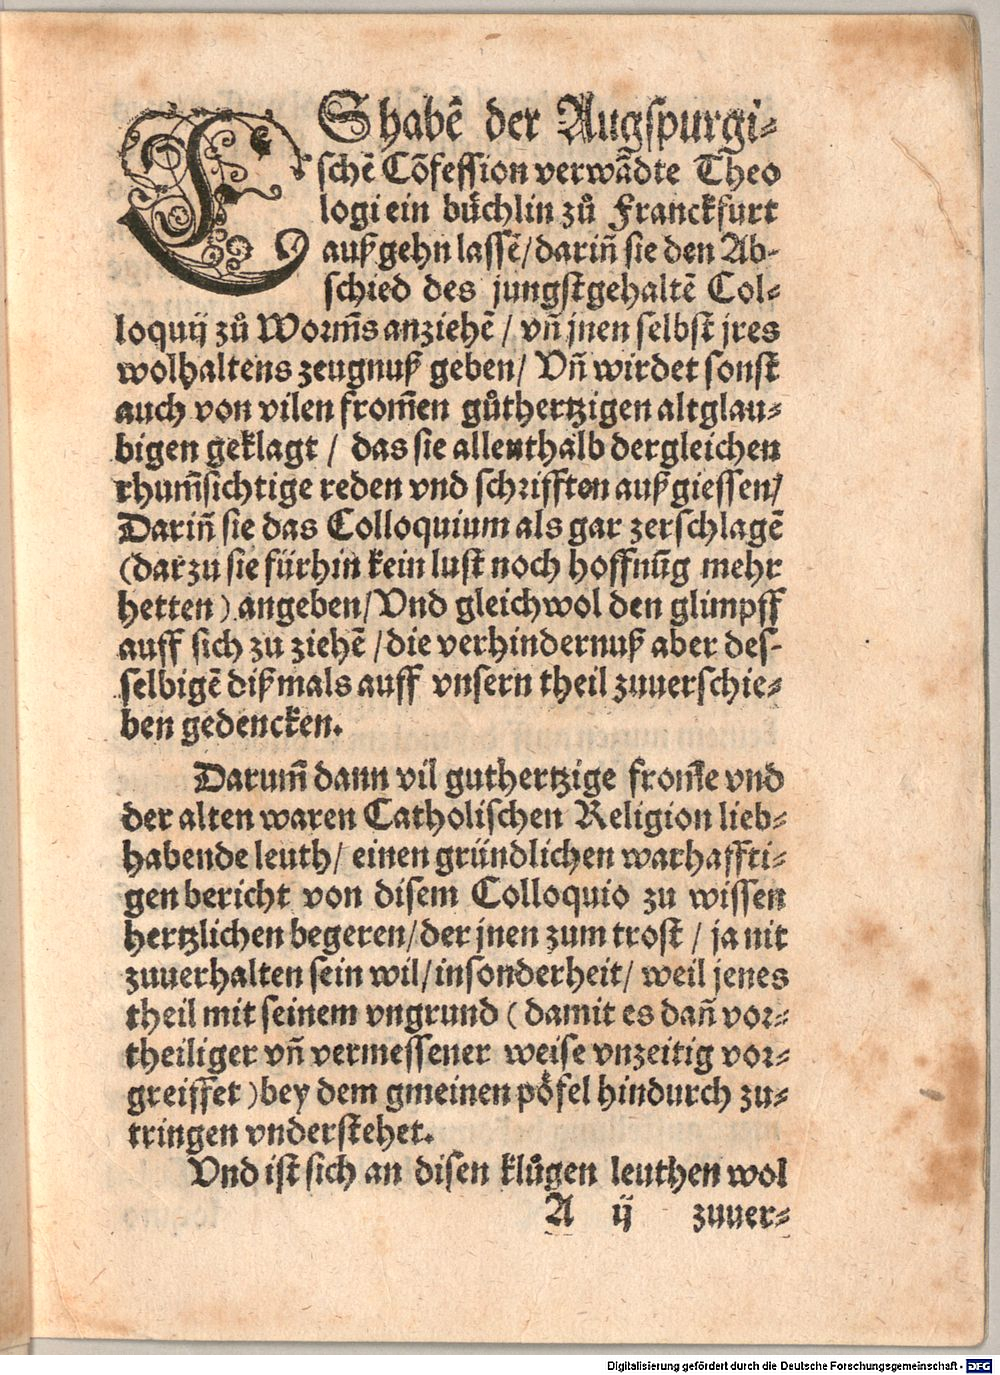 ES habē der Augspurgi⸗
schē Cōfession verwādte Theo
logi ein bůchlin zů Franckfurt
außgehn lassē/darin̄ sie den Ab-
schied des jungstgehaltē Col⸗
loquij zů Worm̄s anziehē / vn̄ jnen selbst jres
wolhaltens zeugnuß geben/ Vn̄ wirdet sonst
auch von vilen from̄en gůthertzigen altglau⸗
bigen geklagt / das sie allenthalb dergleichen
rhum̄sichtige reden vnd schrifften außgiessen/
Darin̄ sie das Colloquium als gar zerschlagē
(darzu sie fürhin kein lust noch hoffnūg mehr
hetten) angeben/Vnd gleichwol den glimpff
auff sich zu ziehē /die verhindernuß aber des-
selbigē dißmals auff vnsern theil zuuerschie⸗
ben gedencken.
Darum̄ dann vil guthertzige from̄e vnd
der alten waren Catholischen Religion lieb⸗
habende leuth/ einen gründlichen warhaffti⸗
gen bericht von disem Colloquio zu wissen
hertzlichen begeren/der jnen zum trost / ja nit
zuuerhalten sein wil/insonderheit/ weil jenes
theil mit seinem vngrund (damit es dan̄ vor⸗
theiliger vn̄ vermessener weise vnzeitig vor⸗
greiffet)bey dem gmeinen pöfel hindurch zu⸗
tringen vnderstehet.
Vnd ist sich an disen klůgen leuthen wol
A ij zuuer⸗
Digitalisierung gefördert durch die Deutsche Forschungsgemeinschaft - DFG